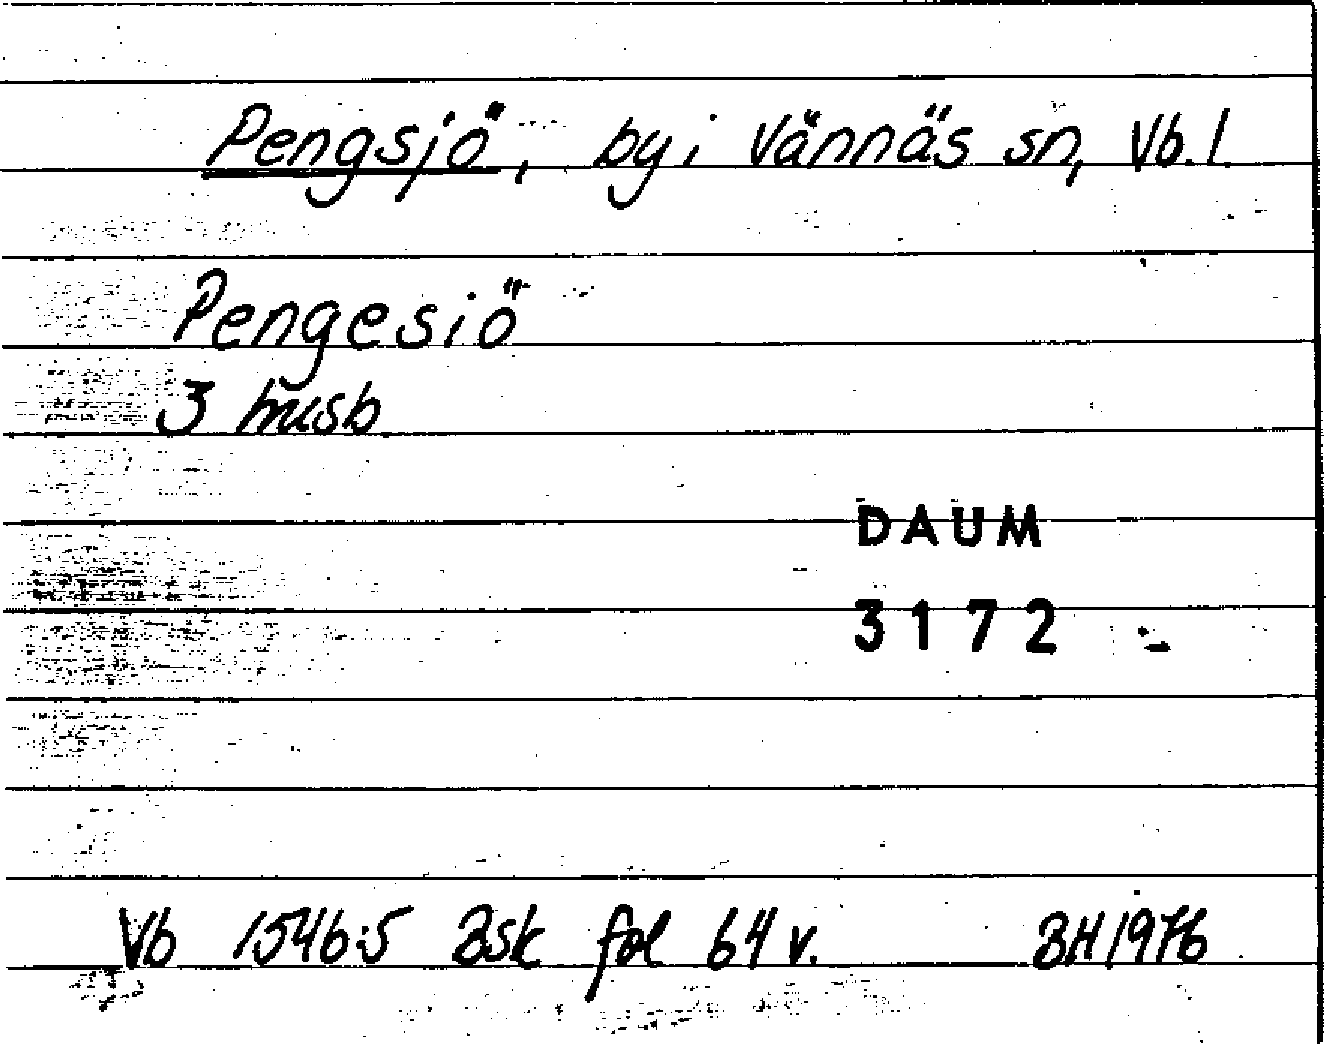 Pengsjö, by i Vännäs sn, Vb. l.
Pengesiö
3 husb
DAUM
3172
Vb 1546:5 Bsk fol 64 v. BH 1976